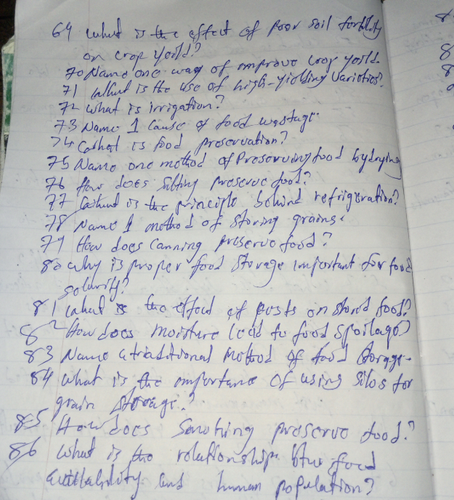 69 what is the effect of poor soil fertility
on crop yeild?
70 Name one way of improve crop yeild.
71 what is the use of high-yielding varieties?
72 what is irrigation?
73 Name 1 cause of food wastage.
74 what is food preservation?
75 Name one method of Preserving food by drying
76 How does salting preserve food?
77 what is the principle behind refrigeration?
78 Name 1 method of storing grains.
79 How does canning preserve food?
80 why is proper food storage important for food
security?
81 what is the effect of pests on stored food?
82 How does moisture lead to food spoilage?
83 Name a traditional method of food storage.
84 what is the importance of using silos for
grain storage?
85 How does smoking preserve food?
86 what is the relationship btw food
availability and human population?